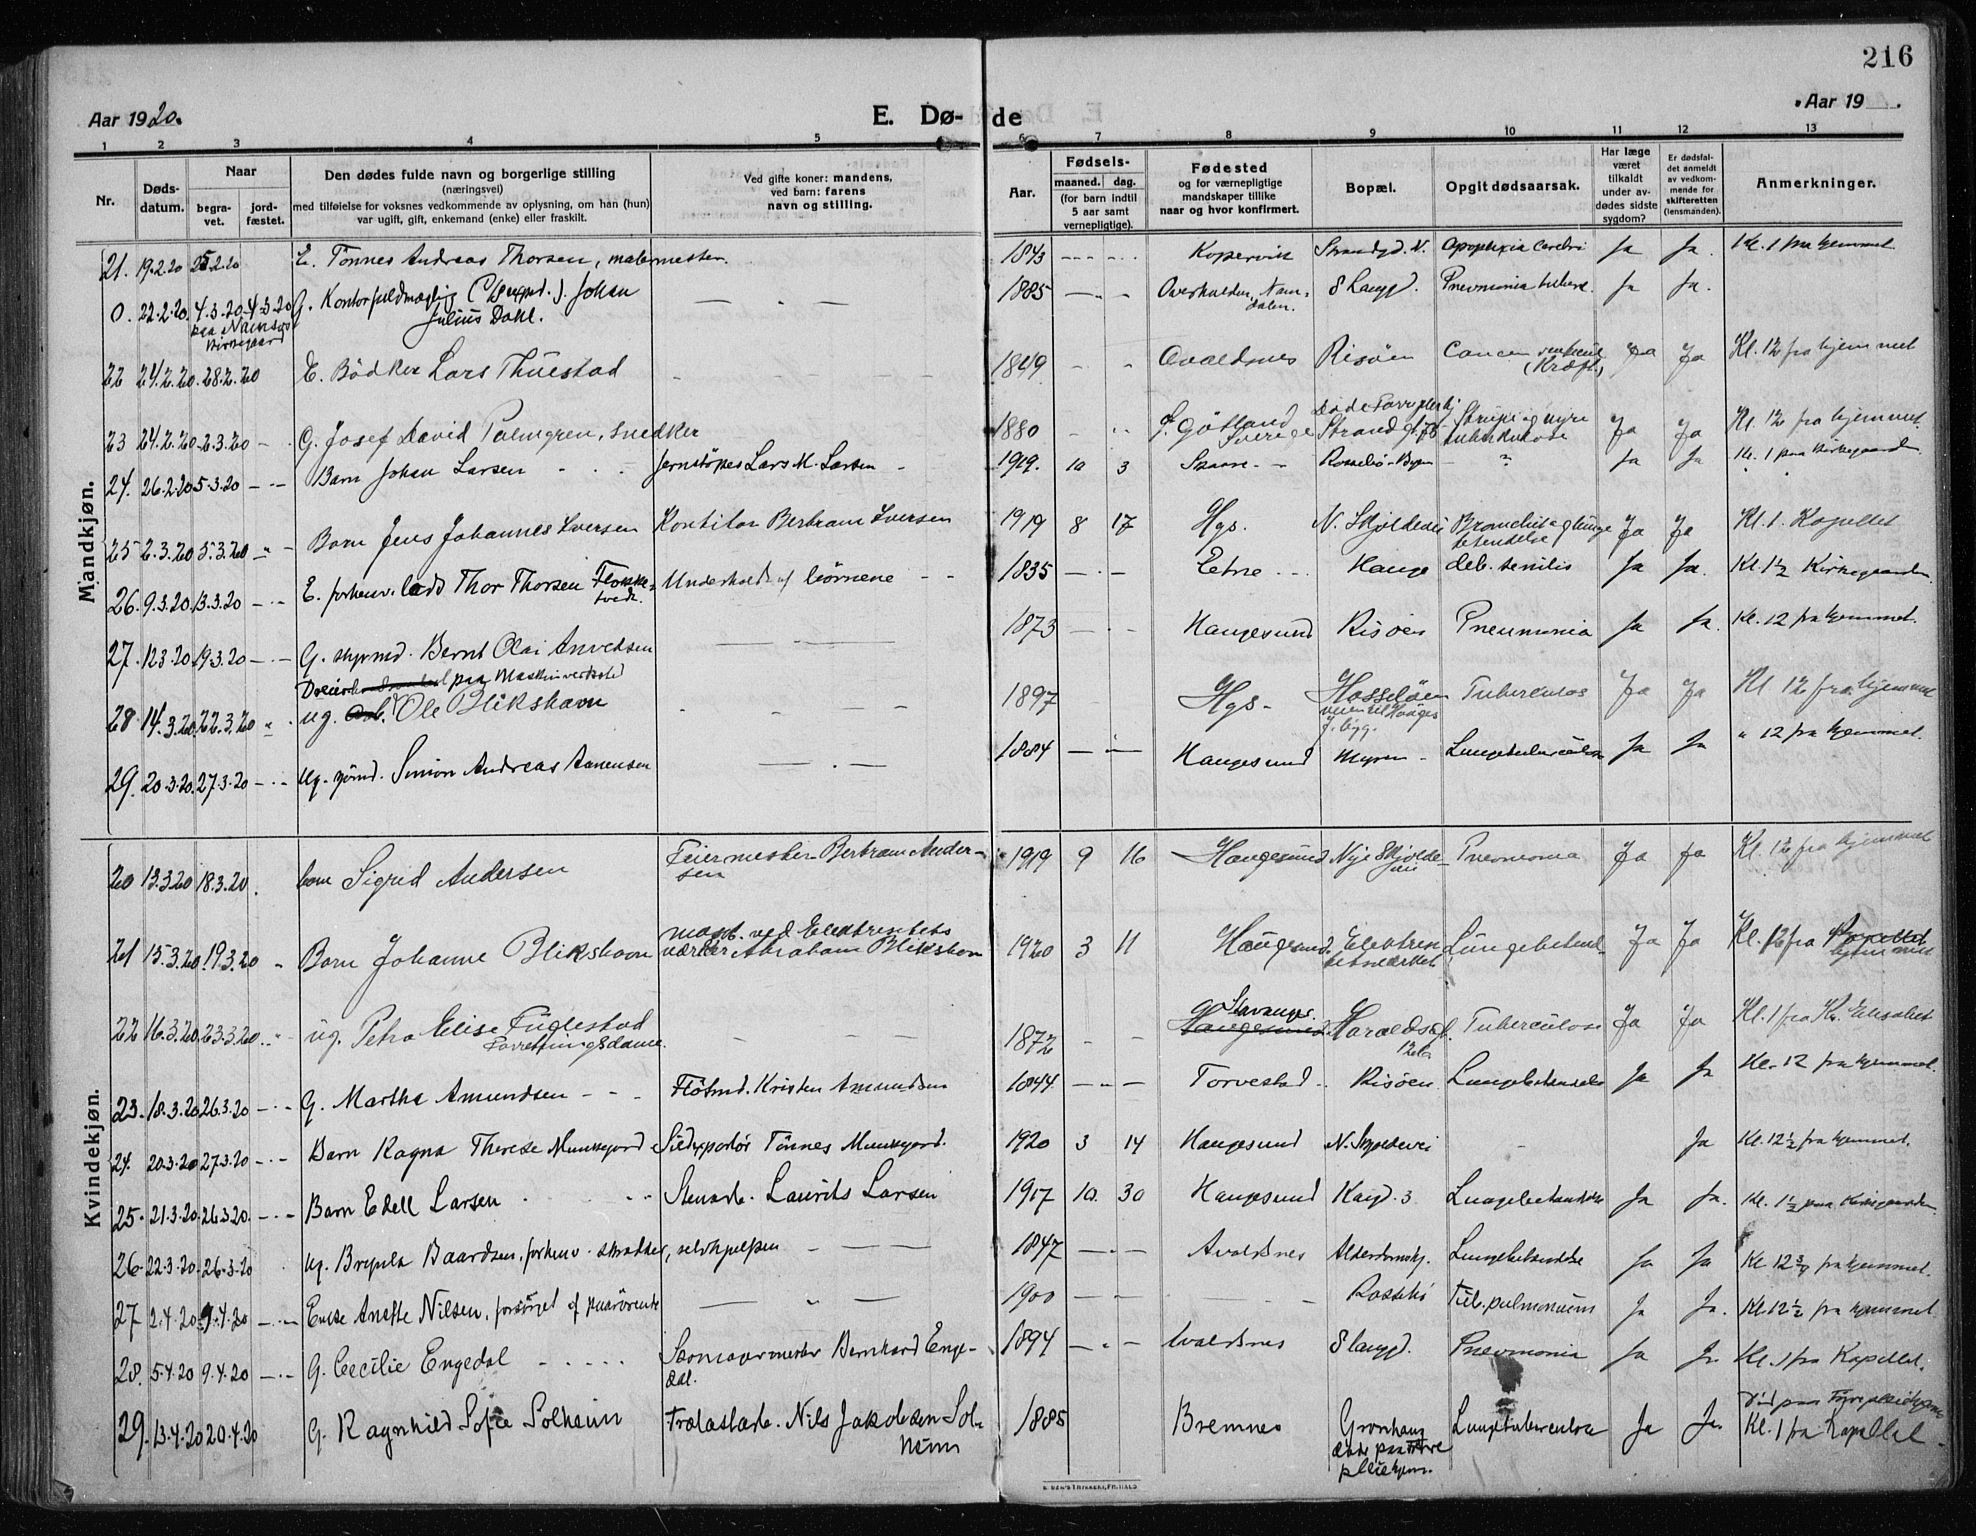 216
Aar 1920.
E. Dø- de
Aar 19
1 2 3 4 5 6 7 8 9 10 11 12 13
Nr.
Døds-
datum.
Naar
begra-
vet.
jord-
fæstet.
Den dødes fulde navn og borgerlige stilling
(næringsvei)
med tilføielse for voksnes vedkommende av oplysning, om han (hun)
var ugift, gift, enkemand (enke) eller fraskilt.
Ved gifte koner: mandens,
ved barn: farens
navn og stilling.
Aar.
Fødsels-
maaned. dag.
(for barn indtil
5 aar samt
vernepligtige).
Fødested
og for værnepligtige
mandskaper tillike
naar og hvor konfirmert.
Bopæl.
Opgit dødsaarsak.
Har læge
været
tilkaldt
under av-
dødes sidste
sygdom?
Er dødsfal-
det anmeldt
av vedkom-
mende for
skifteretten
(lensmanden).
Anmerkninger.
Mandkjøn.
21. 19.2.20 25.2.20 E. Tönnes Andreas Thorsen, malermester. 1843 Kopervik Strandgd. N. Apoplexia cerebri Ja Ja. Kl. 1 fra hjemmet.
0. 22.2.20 4.3.20 4.3.20 G. Kontorfuldmægtig Johan 1885 Overhalden, Nam- Slaugd. Pnevmonia Ja Ja.
paa Namsos
Kirkegaard
Julius Dahl.
dalen.
22 24.2.20. 28.2.20 E. Bödker Lars Thuestad 1849 Avaldsnes Risöen Cancer ventriculi Ja Ja Kl. 12 fra hjemmet
(Kræft)
23 24.2.20 2.3.20 G. Josef David Palmgren, snedker 1880 Götland Strandgt. Strupe og nyre Ja Ja Kl. 12 fra hjemmet.
Sverige tuberkulose
24. 26.2.20 5.3.20 Barn Johan Larsen Lars M. Larsen 1919. 10 3 Skaare Rossebö Ja Ja Kl. 1 paa Kirkegaarden
25 2.3.20 5.3.20 Barn Jens Johannes Iversen Bertram Iversen 1919 8 17 Hgs. N. Skjoldavei Bronchit og lunge Ja Ja Kl. 1. Kapellet
betendelse
26. 9.3.20 13.3.20 E. forhenv. Thor Thorsen Underholdt af börnene 1835 Etne Hauge deb. senilis Ja Ja. Kl. 1½ Kirkegaarden.
27. 12.3.20 19.3.20 G. styrmd. Bernt Olai 1873 Haugesund Risöen Pneumonia Ja Ja. Kl. 12 fra hjemmet.
Dreier paa Maskinverksted
28 14.3.20 22.3.20 ug. Ole Blikshavn 1897 Hgs. Hasselöen Tuberculos Ja Ja Kl 12 fra hjemmet
29. 20.3.20. 27.3.20 Ug. Simon Andreas Aanensen 1884 Haugesund Myren Lungetuberculose Ja Ja " 12 fra hjemmet.
Kvindekjøn.
20 13.3.20 18.3.20. barn Sigrid Andersen Feiermester Bertram Ander- 1919 9 16 Haugesund Nye Skjolda- Pneumonia Ja Ja Kl. 12 fra hjemmet
sen
vei
21 15.3.20 19.3.20 Barn Johanne Blikshavn ved Elektrisitets 1920 3 11 Haugesund. Elektrici- Lungebetend. Ja Ja Kl. 12 fra Kapellet
værket Abraham Blikshavn tetsværket hjemmet
22 16.3.20 23.3.20 ug. Petra Elise Fuglestad 1872 Stavanger. Haraldsgt. Tuberculose Ja Ja Kl. 1 fra K. Elisabet
Forretningsdame. Haugesund
23. 18.3.20 26.3.20 G. Martha Amundsen Kristen Amundsen 1844 Torvestad Risöen. Lungebetændelse Ja Ja Kl. 12 fra hjemmet.
24. 20.3.20 27.3.20 Barn Ragna Therese Munkejord Tönnes Munkejord. 1920 3 14 Haugesund N. Skjoldavei Ja Kl. 12½ fra hjemmet.
25. 21.3.20 26.3.20. Barn Edell Larsen Stenarb. Laurits Larsen 1917 10. 30 Haugesund Kaigd. 3 Lungebetændelse Ja Ja. Kl. 1½ paa Kirkegaarden.
26 22.3.20 26.3.20 Ug. Baardsen, forhenv. selvhjulpen 1847 Avaldsnes Alderdomshj. Lungebetændelse Ja Ja Kl. 12¾ fra hjemmet.
27 2.4.20 9.4.20 Nilsen, forsörget af paarörende 1900 Rossebö Tub. pulmonum Ja Ja. Kl 12½ fra hjemmet.
28. 5.4.20 9.4.20 G. Cecilie Engedal Bernhard Enge- 1894 Avaldsnes Slaugd. Pnevmonia Ja Ja Kl. 1 fra Kapellet.
dal.
29. 13.4.20 20.4.20 G. Ragnhild Sofie Solheim Trælastarb. Nils Jakobsen Sol- 1885 Bremnes Grönhaug Lungetuberculose Ja Ja. Kl. 1 fra Kapellet.
heim
döde paa
pleiehjem.